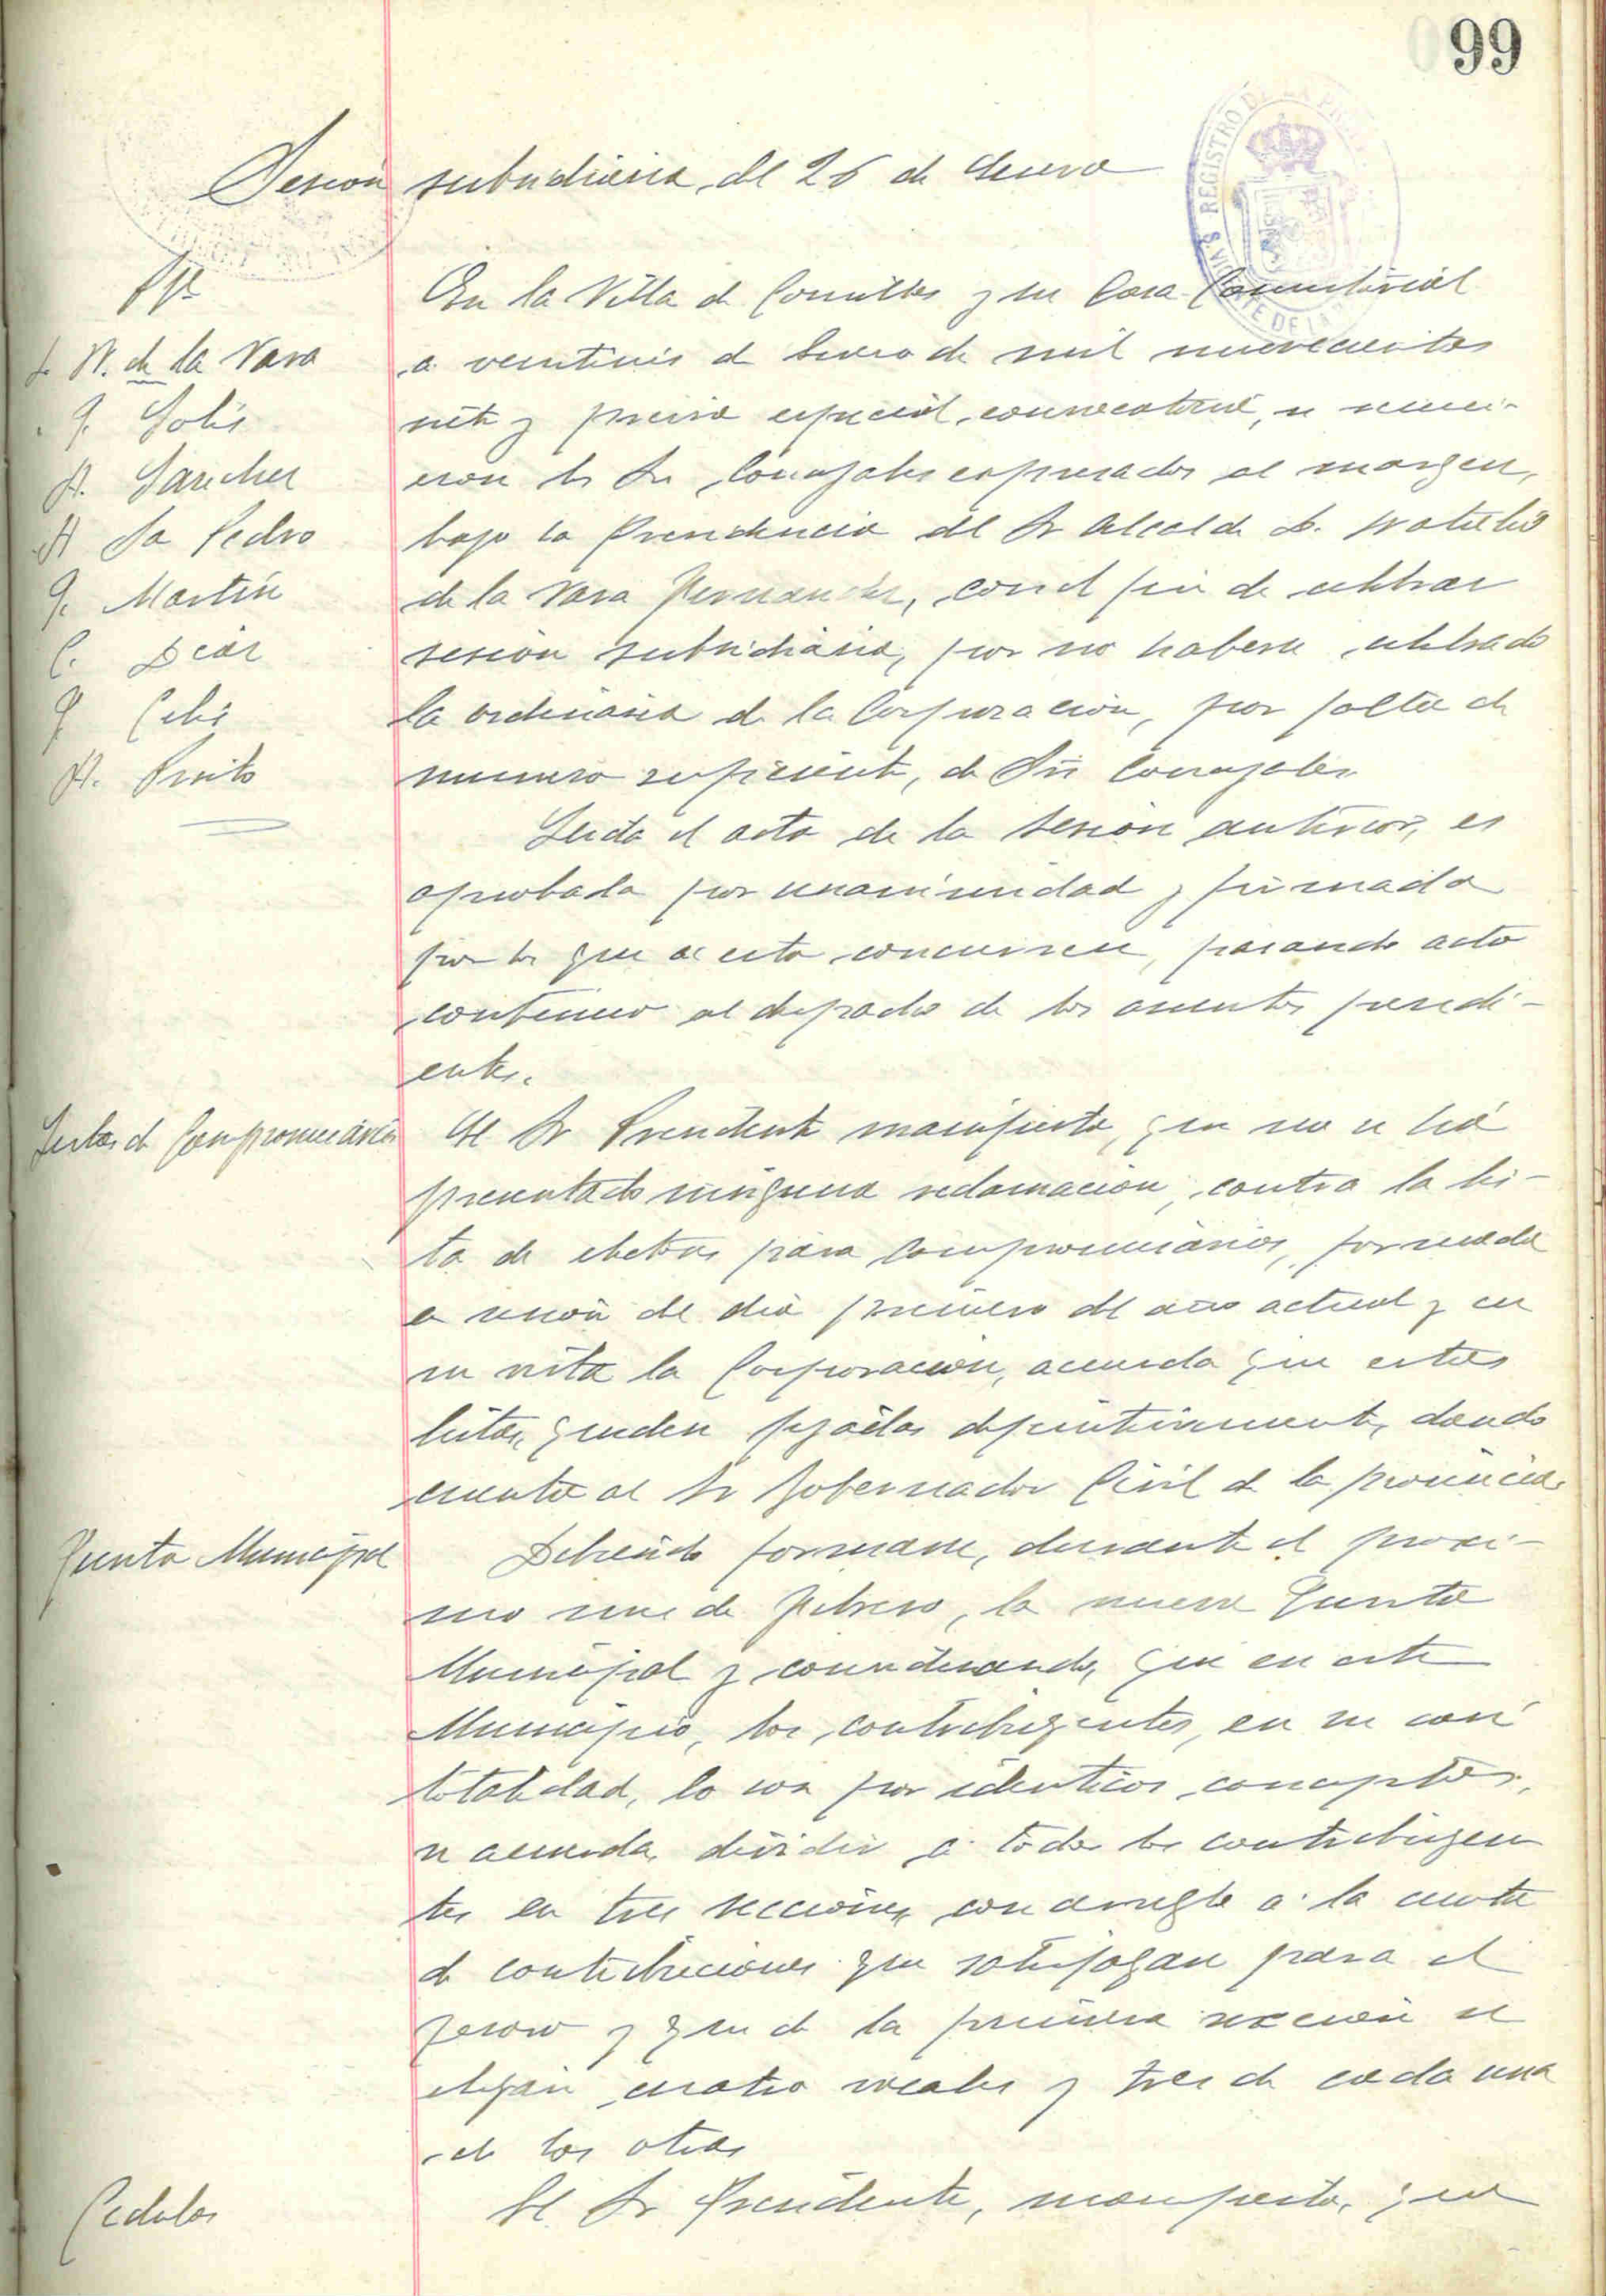 99
Sesión subsidiaria del 26 de Enero
En la Villa de Comillas y su Casa Consistorial
a veintiseis de Enero de mil novecientos
siete y previa especial convocatoria, se reuni-
eron los Srs Concejales expresados al margen,
bajo la Presidencia del Sr Alcalde D.
de la Vara Fernandez, con el fin de celebrar
sesión subsidiaria, por no haberse celebrado
la ordinaria de la Corporación, por falta de
numero suficiente, de Srs Concejales
J. N. de la Vara
J. Solís
A. Sanchez
A Sn Pedro
J. Martín
C. Diaz
J Celis
A. Prieto
Leida el acta de la sesión anterior, es
aprobada por unanimidad y firmada
por los que a esta concurren, pasando acto
continuo al despacho de los asuntos pendi-
entes.
Listas de Compromisarios
El Sr Presidente manifiesta, que no se há
presentado ninguna reclamación, contra la lis-
ta de electores para Compromisarios, formada
en sesión del día primero del año actual y en
su vista la Corporación, acuerda que estas
listas, queden fijadas definitivamente, dando
cuenta al Sr Gobernador Civil de la provincia
Junta Municipal
Debiendo formarse, durante el proxi-
mo mes de Febrero, la nueva Junta
Municipal y considerando, que en este
Municipio, los contribuyentes, en su casi
totalidad, lo son por identicos conceptos,
se acuerda, dividir a todos los contribuyen
tes en tres secciones, con arreglo a la cuota
de contribuciones que satisfagan para el
Tesoro y que de la primera sección se
elijan cuatro vocales y tres de cada una
de las otras
Cedulas
El Sr Presidente, manifiesta, que